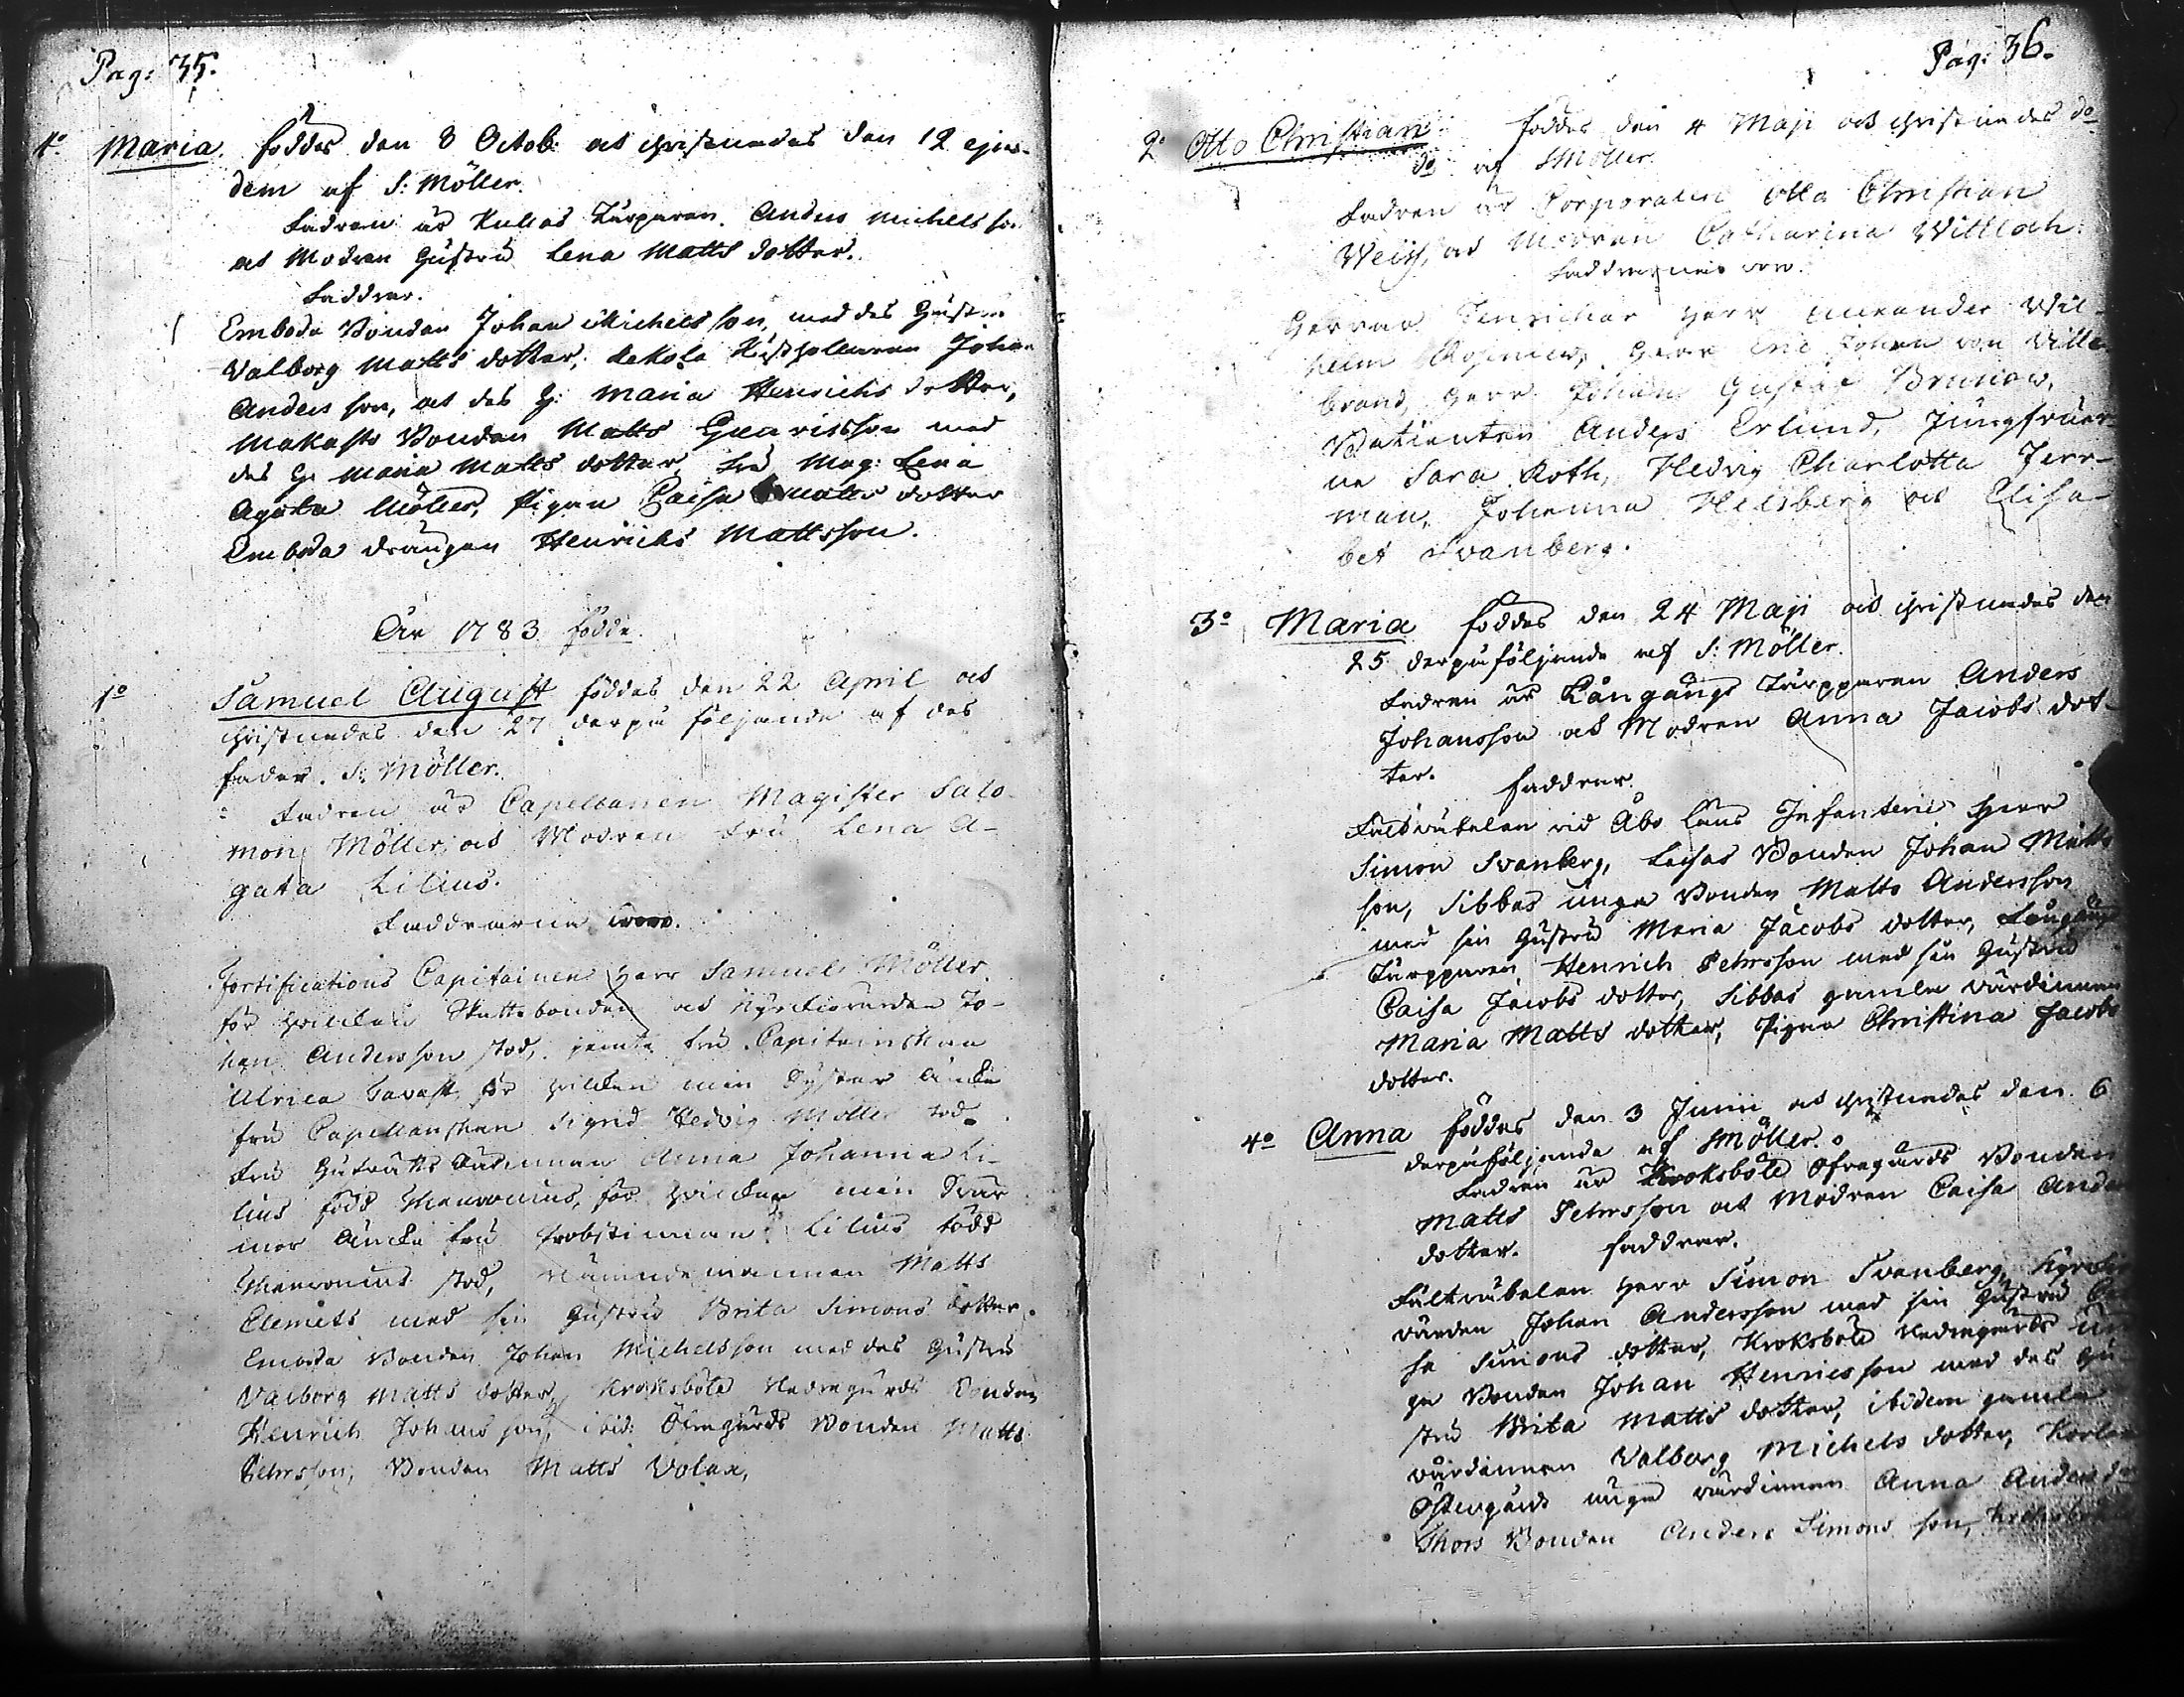 Pag: 35.
4º Maria föddes den 8 Octob: och christnades den 12 ejus-
dem af S: Möller.
Fadren är Kullas Torparen Anders Michelsson
och Modren Hustru Lena Matts dotter.
Faddrar.
Emboda Bonden Johan Michelsson, med des Hustru
Valborg Matts dotter, Rusthollaren Johan
Anders son, och des H: Maria Henrichs dotter,
Bonden Matts Henricsson med
des H: Maria Matts dotter, Fru Mag: Lena
Agata Möller, Pigan Caisa Matts dotter
Emboda drängen Henrichs Mattsson.
År 1783 födde.
1º Samuel August föddes den 22 April och
christnades den 27 derpå följande af des
fader S: Möller.
Fadren är Capellanen Magister Salo-
mon Möller, och Modren Fru Lena A-
gata Lilius.
Faddrarne woro.
Fortifications Capitainen Herr Samuel Möller
för hvilken Skattebonden och Kyrckiovärden Jo-
han Andersson stod, jemte Fru Capitainskan
Ulrica Tavast, för hvilken min Syster Äncke
fru Capellanskan Sigrid Hedvig Möller stod.
Fru Anna Johanna Li-
lius född för hvilken min Svär
mor Äncke fru Probstinnan Lilius född
stod, Nämndemannen Matts
Clemets med sin Hustru Brita Simons dotter.
Emboda Bonden Johan Michelsson med des Hustru
Valborg Matts dotter, Kroksböle Nedregårds Bonden
Henrich Johansson, ibid: Öfregårds Bonden Matts
Pehrsson, Bonden Matts Volax,
Pag: 36.
2º Otto Christian föddes den 4 Maji och christnades do
do af S Möller.
Fadren är Corporalen Otto Christian
Weiss, och Modren Catharina Wittloch.
Faddrarne woro.
Herrar Herr Wil-
helm Herr Eric Johan von Wille-
brand, Herr Johan Gustaf Brunow,
Anders Erlund, Jungfruer-
ne Sara Roth, Hedvig Charlotta Jerr-
man, Johanna Helsberg och Elisa-
bet Svanberg.
3º Maria föddes den 24 Maji och christnades den
25 derpåföljande af S: Möller.
Fadren är Långängs Torpparen Anders
Johansson och Modren Anna Jacobs dot-
ter. Faddrar.
Fältväbelen vid Åbo Läns Infanterie Herr
Simon Svanberg, Bonden Johan Matts
son, Sibbas unga Bonden Matts Andersson
med sin Hustru Maria Jacobs dotter, Långängs
Torpparen Henrich Pehrsson med sin Hustru
Caisa Jacobs dotter, Sibbas gamla värdinnan
Maria Matts dotter, Pigan Christina Jacobs
dotter.
4º Anna föddes den 3 Junii och christnades den 6
derpåföljande af S Möller.
Fadren är Kroksböle Öfregårds Bonden
Matts Pehrsson och Modren Caisa Anders
dotter. Faddrar.
Fältväbelen Herr Simon Svanberg, Kyrckio
värden Johan Andersson med sin Hustru Cai
sa Simons dotter, Kroksböle Nedregårds un
ga Bonden Johan Henricsson med des Hu
stru Brita Matts dotter, ibidem gamla
värdinnan Valborg Michels dotter,
Östergårds unga värdinnan Anna Anders
Thors Bonden Anders Simons son, Kroksböle